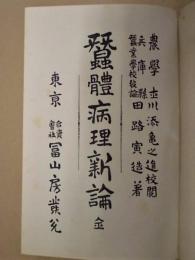 農學士川添亀之進校閲
兵庫縣
蚕業學校教諭
田路寅造著
蠶體病理新論 全
東京
合資
會社
冨山房發兌